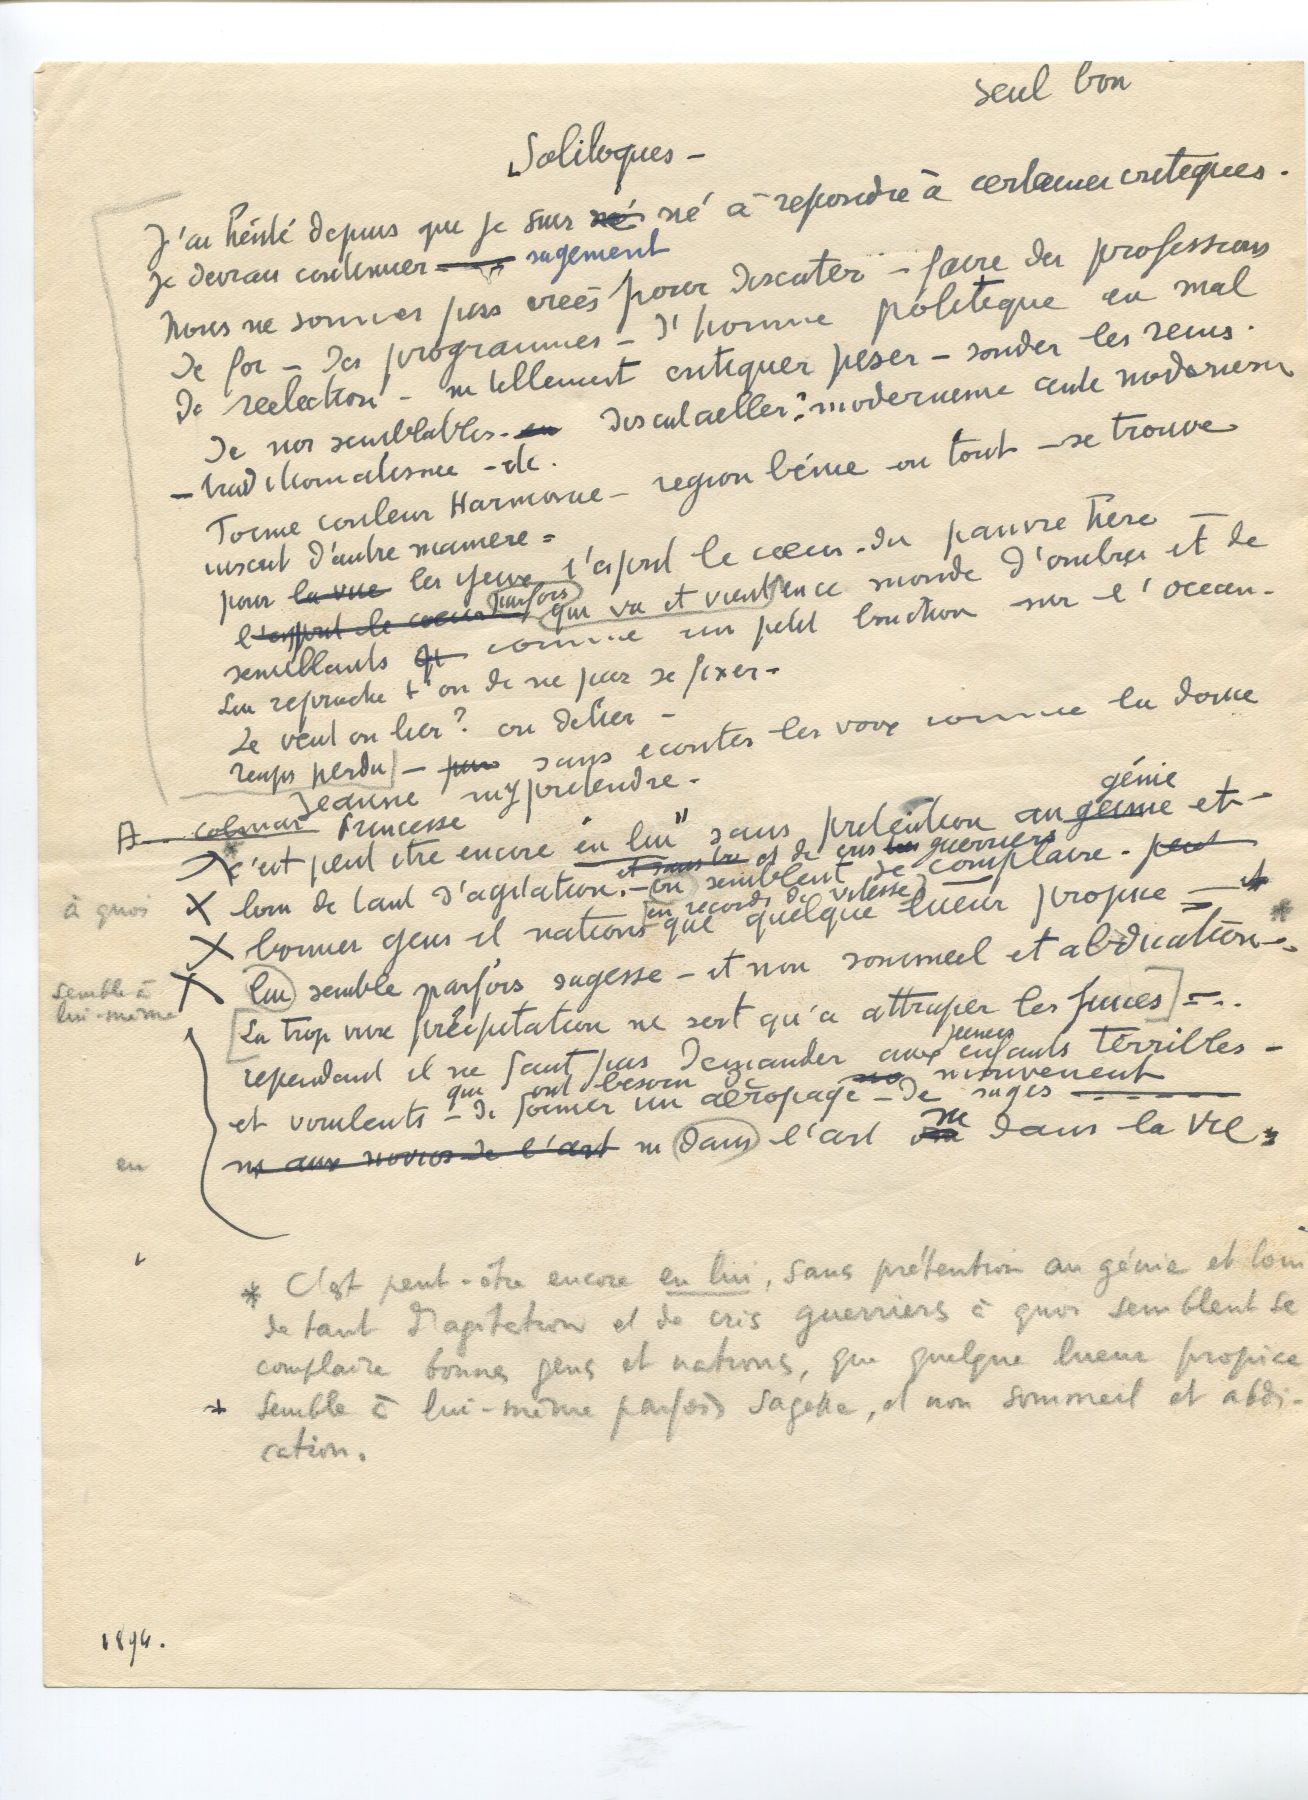 seul bon
Soliloques –
J'ai hésité depuis que je suis né né à repondre à certaines critiques.
Je devrais continuer – sagement
Nous ne sommes pas créés pour discuter – faire des professions
de foi – des programmes – d'homme politique en mal
de reelection – ni tellement critiquer peser – sonder les reins.
de nos semblables – en modernisme
– traditionalisme – etc.
Forme couleur Harmonie – region bénie ou tout – se trouve
inscrit d'autre maniere =
pour la vue les yeux l'esprit le cœur – du pauvre hère –
l'esprit le cœur parfois qui va et vient en ce monde d'ombres et de
semblants qui comme un petit bouchon sur l'ocean.
Lui reproche t'on de ne pas se fixer –
Le veut on lier? ou delier –
Temps perdu – sans ecouter les voix comme la dame
Jeanne m'y pretendre.
A. colmar Princesse
génie
X c'est peut etre encore en lui" sans prétention au genie et –
et de cris guerriers
X loin de tant d'agitation. – ou semblent se complaire – peut
en records de vitesse
à quoi
X bonnes gens et nations que quelque lueur propice = et
X lui semble parfois sagesse – et non sommeil et abdication –
semble à
lui-même
[La trop vive précipitation ne sert qu'a attraper les puces] = ..
cependant il ne faut pas demander aux jeunes enfants terribles –
qui ont besoin de mouvement
et virulents – de former un aéropage – de sages
ni aux novices de l'art ni dans l'art ni dans la vie.
en
* C'est peut-être encore en lui, sans prétention au génie et loin
de tant d'agitation et de cris guerriers à quoi semblent se
complaire bonnes gens et nations, que quelque lueur propice
semble à lui-même parfois sagesse, et non sommeil et abdi-
cation.
1894.